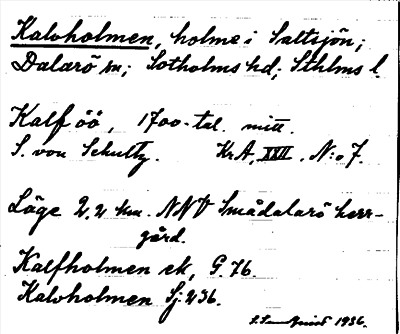 Kalvholmen, holme i Saltsjön;
Dalarö sn; Sotholms hd; Sthlms l.
Kalf öö, 1700-tal. mitt.
S. von Schultz. Kr A, XXII, N:o 7.
Läge 2,2 km. NNV Smådalarö herr-
gård.
Kalfholmen ek, G. 76.
Kalvholmen Sj: 236.
1936.